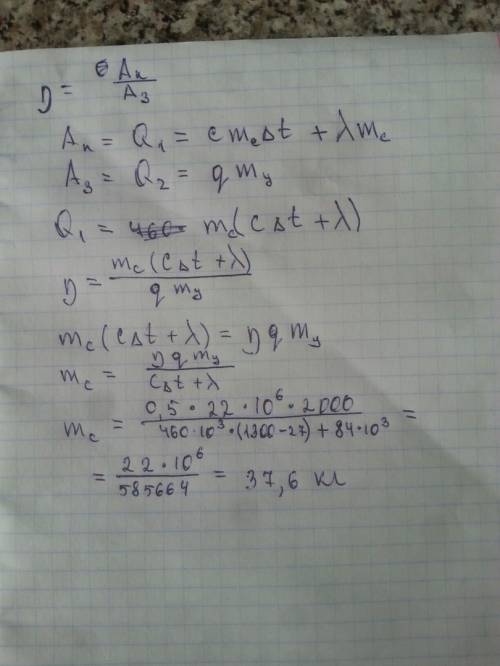 η = Aп/Aз
Aп = Q₁ = c mc Δt + λ mc
Aз = Q₂ = q mу
Q₁ = mc(cΔt + λ)
η = mc(cΔt + λ)/q mу
mc(cΔt + λ) = η q mу
mc = η q mу/cΔt + λ
mc = 0,5 · 22 · 10⁶ · 2000/460·10³·(1300-27) + 84·10³ =
= 22 · 10⁶/585664 = 37,6 кг